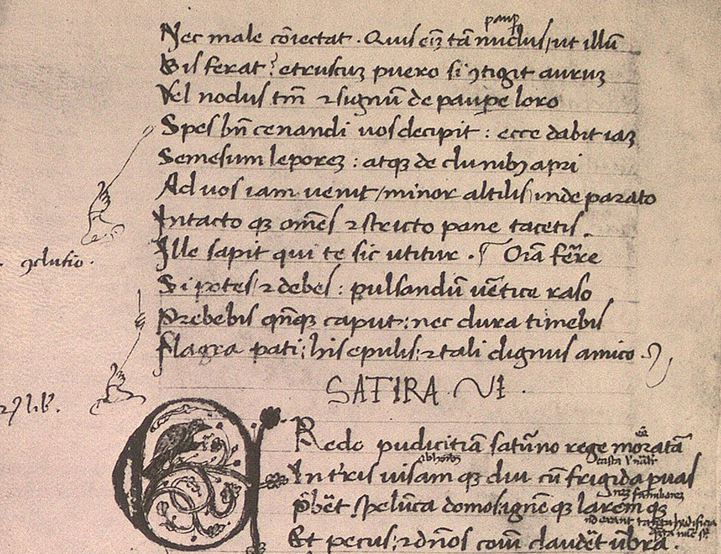 paup
Nec male cōiectat. Quis eīz tā nudus/ ut illū
Bis ferat? etruscuz puero si ꝯtigit auruz
Vel nodus tm̄ ⁊ signū de paupe loro
Spes bn̄ cenandi uos decipit: ecce dabit iaz
Semesum leporez: atqꝫ de clunibꝫ apri
Ad uos iam ueniet/ minor altilis/ inde parato
Intacto qꝫ om̄es ⁊ stricto pane tacetis.
Ille sapit qui te sic utitur. Oīa ferre
ꝯclutio.
Si potes/ ⁊ debes: pulsandū uertice raso
Prebebis qn̄qꝫ caput: nec dura timebis
Flagra pati: his epulis: ⁊ tali dignus amico
SATIRA VI.
lib.
CRedo pudicitiā saturno rege moratā
In terris uisam qꝫ diu cū frigida puas
p̄beret spelūca domos: ignē qꝫ larem qꝫ
Et pecus: ⁊ dn̄os cōi clauderet ūbra